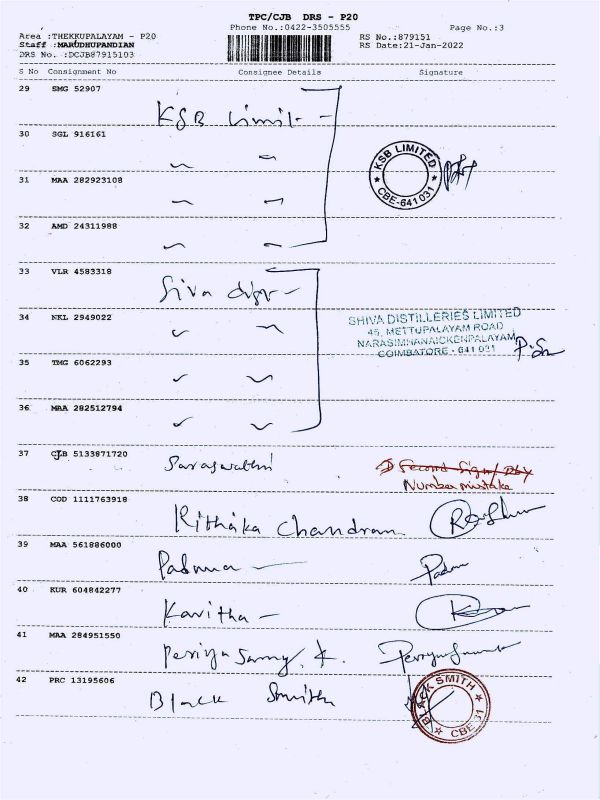 TPC/CJB DRS - P20
Phone No.:0422-3505555
Page No.:3
Area :THEKKUPALAYAM - P20
RS No.:879151
Staff :MARUDHUPANDIAN
RS Date:21-Jan-2022
DRS No. :DCJB87915103
S No Consignment No Consignee Details Signature
29 SMG 52907
KSB Limit-
30 SGL 916161
KSB LIMITED
CBE-641 031
31 MAA 282923108
32 AMD 24311988
33 VLR 4583318
Siva
34 NKL 2949022
SHIVA DISTILLERIES LIMITED
45, METTUPALAYAM ROAD
NARASIMHANAICKENPALAYAM,
COIMBATORE - 641 031
35 TMG 6062293
36 MAA 282512794
37 CJB 5133871720
Saraswathi
Second Sign/
Number mistake
38 COD 1111763918
Rithika Chandran
39 MAA 561886000
Padma
Padma
40 KUR 604842277
Kavitha -
41 MAA 284951550
Periyasamy. K.
42 PRC 13195606
Black Smith
BLACK SMITH
CBE-31